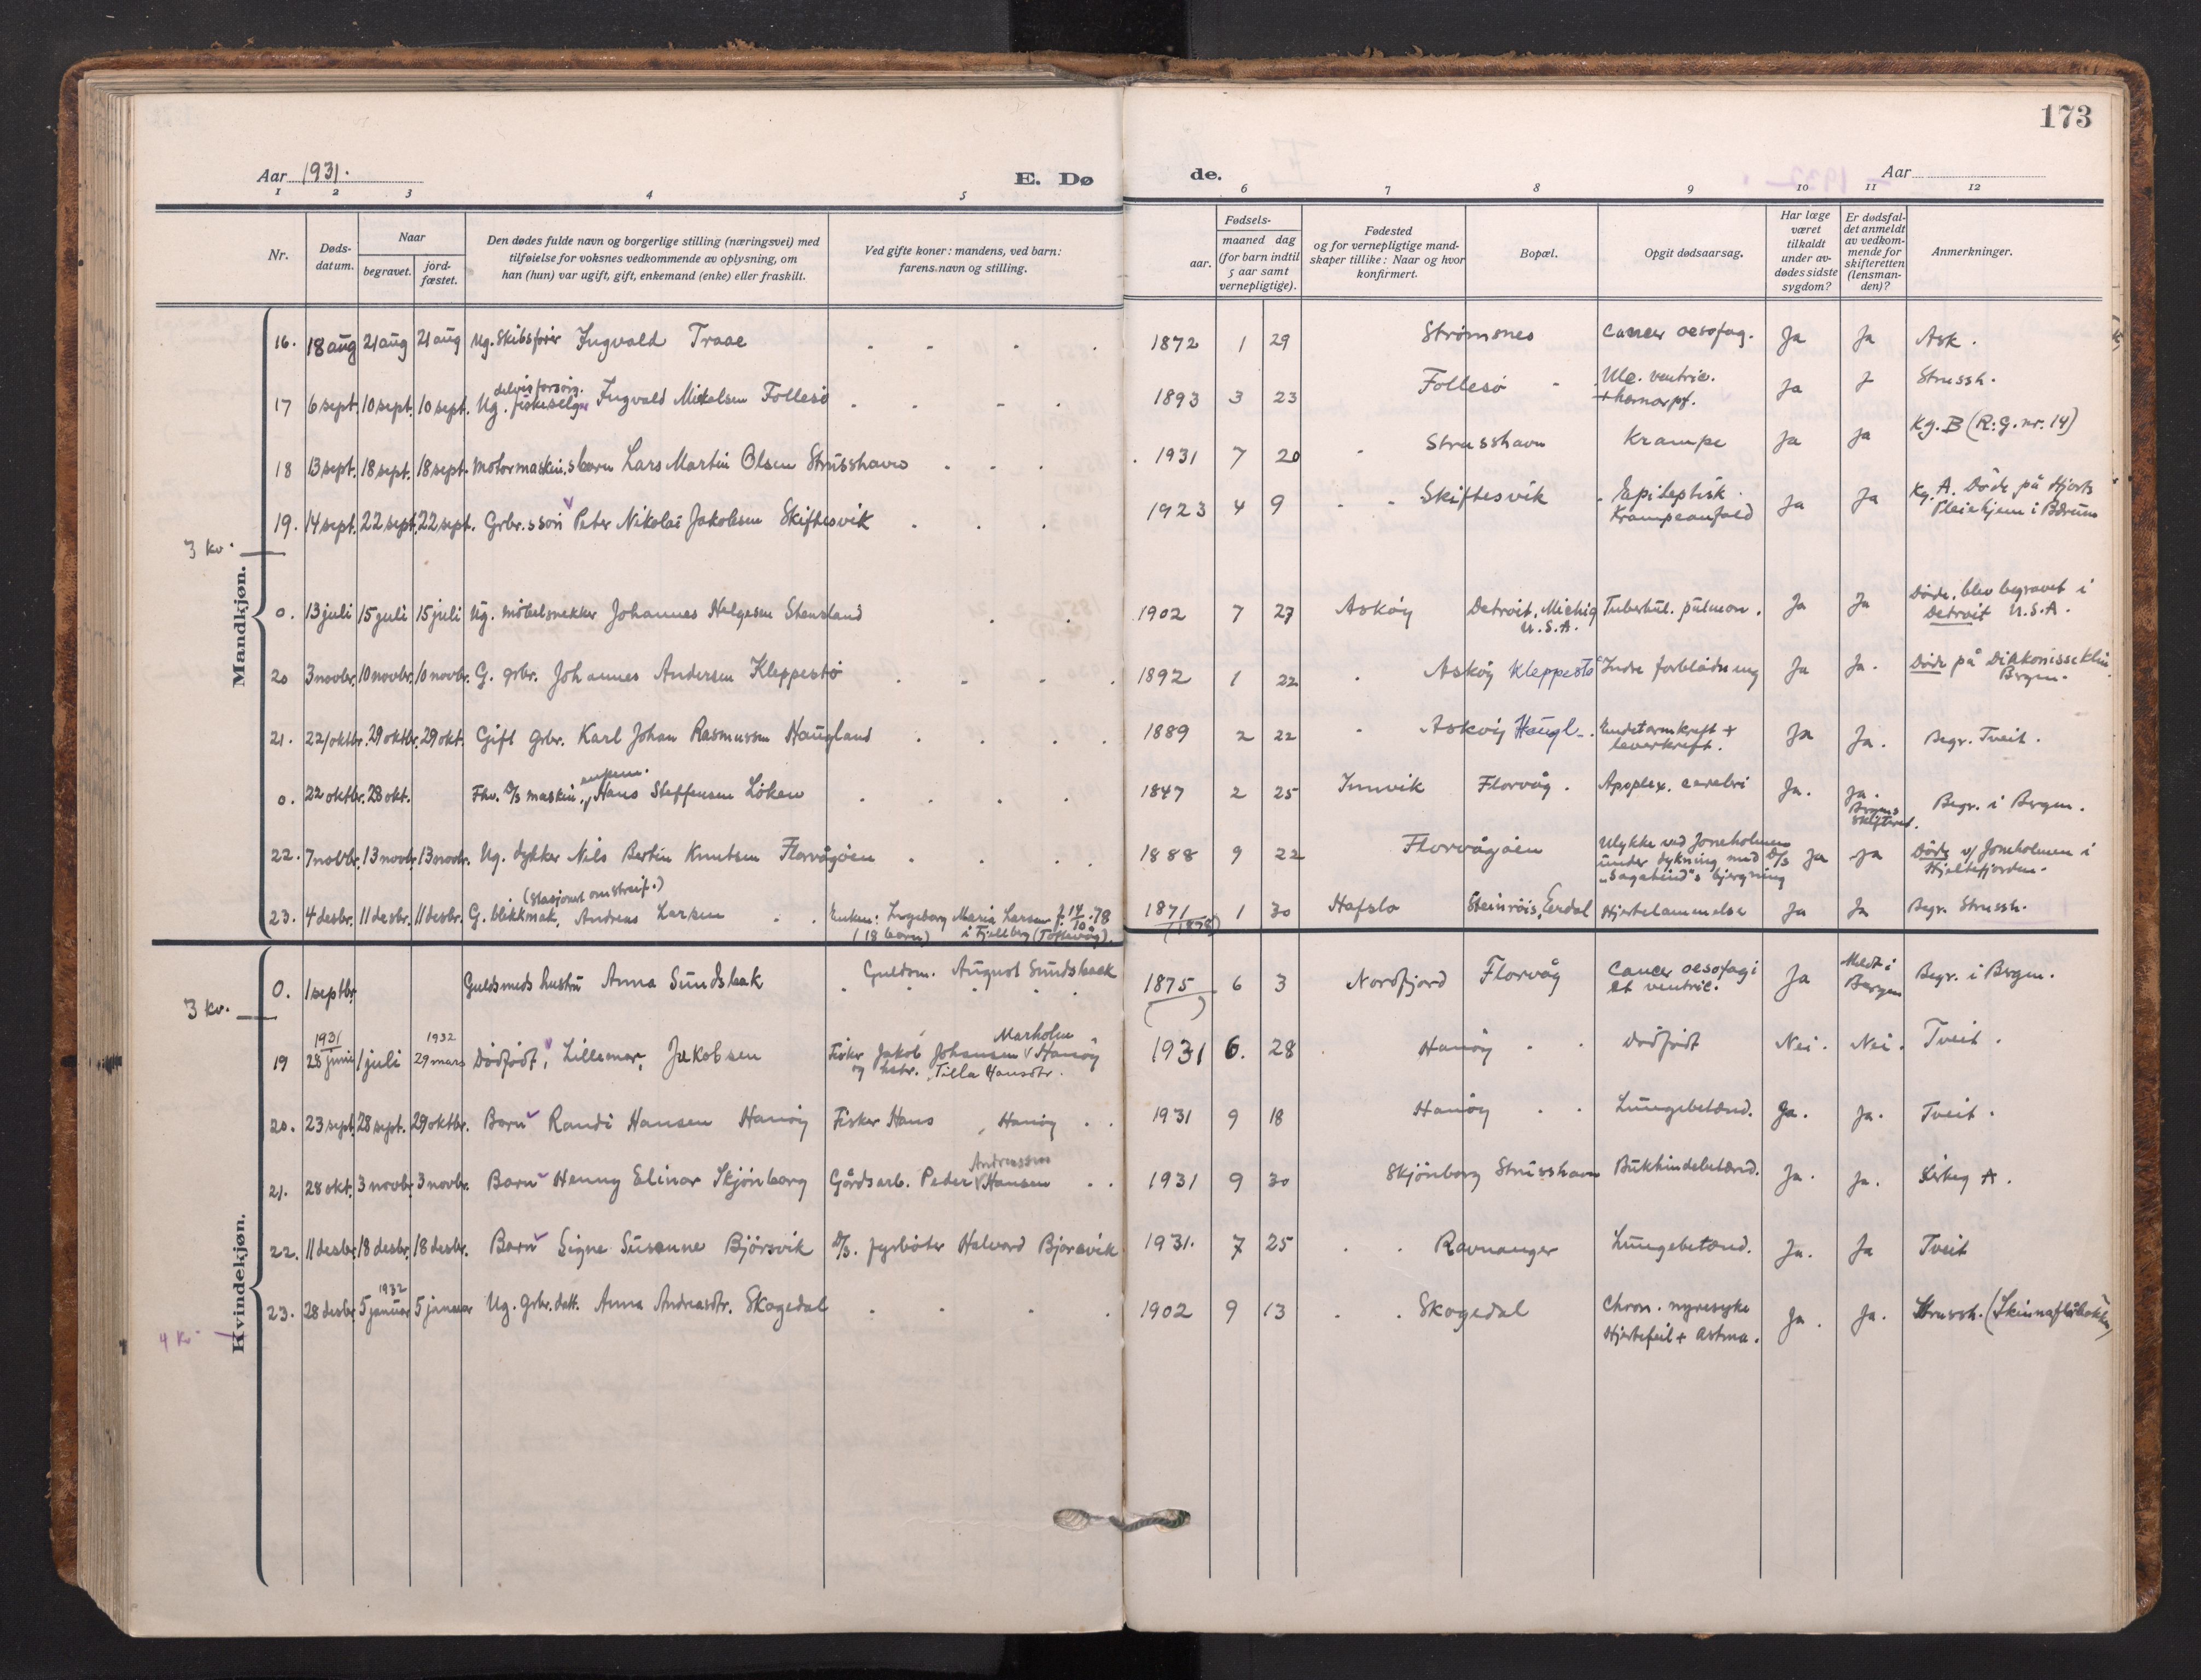 173
Aar 1931. E. Dø de. Aar
1 2 3 4 5 6 7 8 9 10 11 12
Nr. Døds-datum. Naar begravet. jord-fæstet. Den dødes fulde navn og borgerlige stilling (næringsvei) med tilføielse for voksnes vedkommende av oplysning, om han (hun) var ugift, gift, enkemand (enke) eller fraskilt. Ved gifte koner: mandens, ved barn: farens navn og stilling. Fødsels- aar. maaned dag (for barn indtil 5 aar samt vernepligtige). Fødested og for vernepligtige mand-skaper tillike: Naar og hvor konfirmert. Bopæl. Opgit dødsaarsag. Har læge været tilkaldt under av-dødes sidste sygdom? Er dødsfal-det anmeldt av vedkom-mende for skifteretten (lensman-den)? Anmerkninger.
Mandkjøn.
16. 18 aug 21 aug 21 aug Ug. Skibsfører Ingvald Traae 1872 1 29 Strømsnes Cancer oesofag. Ja Ja Ask.
17 6 sept. 10 sept. 10 sept. Ug. delvis forsørg. fiskeselger Ingvald Mikalsen Follesø 1893 3 23 Follesø Ulc. ventric. Ja J Strussh.
18 13 sept. 18 sept. 18 sept. Motormaskin.s barn Lars Martin Olsen Strusshavn 1931 7 20 Strusshavn Krampe Ja Ja Kg. B (R:G. nr. 14)
19. 14 sept. 22 sept. 22 sept. Grbr.s søn Peter Nikolai Jakobsen Skiftesvik 1923 4 9 Skiftesvik Epileptisk Krampeanfald Ja Ja Kg. A. Døde på Hjorts Pleiehjem i Bærum
3 kv.
0. 13 juli 15 juli 15 juli Ug. møbelsnekker Johannes Helgesen Stensland 1902 7 27 Askøy Detroit, Michig U.S.A. Tuberkul. pulmon. Ja Ja Døde, blev begravet i Detroit U.S.A.
20 3 novbr. 10 novbr. 10 novbr. G. grbr. Johannes Andersen Kleppestø 1892 1 22 Askøy Kleppestø Indre forblødning Ja Ja. Døde på Diakonisseklin. Bergen.
21. 22/oktbr. 29 oktbr. 29 okt. Gift grbr. Karl Johan Rasmussen Haugland 1889 2 22 Askøy Haugl. Endetarmkreft + leverkreft. Ja Ja. Begr. Tveit.
0. 22 oktbr. 28 okt. Fhv. D/s maskin., enkem. Hans Steffensen Løken 1847 2 25 Innvik Florvåg. Apoplex. cerebri Ja. Ja. Bergens Skifteret. Begr. i Bergen.
22. 7 novbr. 13 novbr. 13 novbr. Ug. dykker Nils Bertin Knutsen Florvågøen 1888 9 22 Florvågøen Ulykke ved Joneholmen under dykning med D/s "Sagatind"s bjergning Ja Ja Døde v/ Joneholmen i Hjeltefjorden.
23. 4 desbr. 11 desbr. 11 desbr. G. blikkmak. (stasjonert omstreif.) Andreas Larsen Enken: Ingeborg Maria Larsen f. 14/10 .78 (18 barn) i Fjellberg 1871 (1878) 1 30 Hafslo Steinrøis, Eerdal Hjertelammelse Ja Ja Begr. Strussh.
Kvindekjøn.
0. 1 septbr. Guldsmeds hustru Anna Sundsbak Guldsm. August Sundsbaek 1875 6 3 Nordfjord Florvåg Cancer oesofagi et ventric. Ja Meldt i Bergen Begr. i Bergen.
3 kv.
19 1931 28 juni 1 juli 1932 29 mars Dødfødt, Lillemor, Jakobsen Fisker Jakob Johansen Marholm Hanøy og hstr. Tilla Hansdtr. 1931 6. 28 Hanøy dødfødt Nei. Nei. Tveit.
20. 23 sept. 28 sept. 29 oktbr. Barn Randi Hansen Hanøy Fisker Hans, Hanøy 1931 9 18 Hanøy Lungebetænd. Ja. Ja. Tveit.
21. 28 okt. 3 novbr. 3 novbr. Barn Henny Elinor Skjønborg Gårdsarb. Peder Andreassen Hansen 1931 9 30 Skjønborg Strusshavn Bukhindebetænd. Ja. Ja. Kirkeg A.
22. 11 desbr. 18 desbr. 18 desbr. Barn Signe Susanne Bjørsvik D/s. fyrbøter Halvard Bjørsvik 1931. 7 25 Ravnanger Lungebetænd. Ja. Ja Tveit
23. 28 desbr. 1932 5 januar 5 januar Ug. Grbr. datt. Anna Andreasdtr. Skogedal 1902 9 13 Skogedal Chron. nyresyke Hjertefeil + Astma. Ja. Ja. Strussh.
4 Kv.